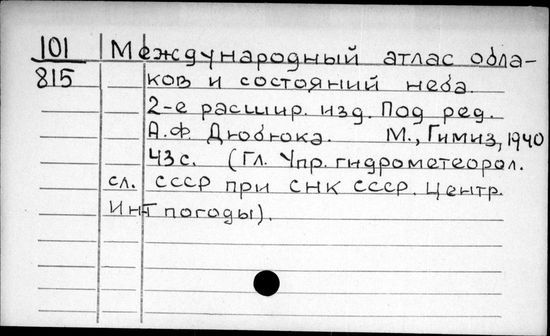 101 Международный атлас обла-
815 ков и состояний неба.
2-е расшир. изд. Под ред.
А.Ф. Дюбюка. М., Гимиз, 1940
43 с. (Гл. Упр. гидрометеорол.
сл. СССР при СНК СССР. Центр.
Инт погоды).